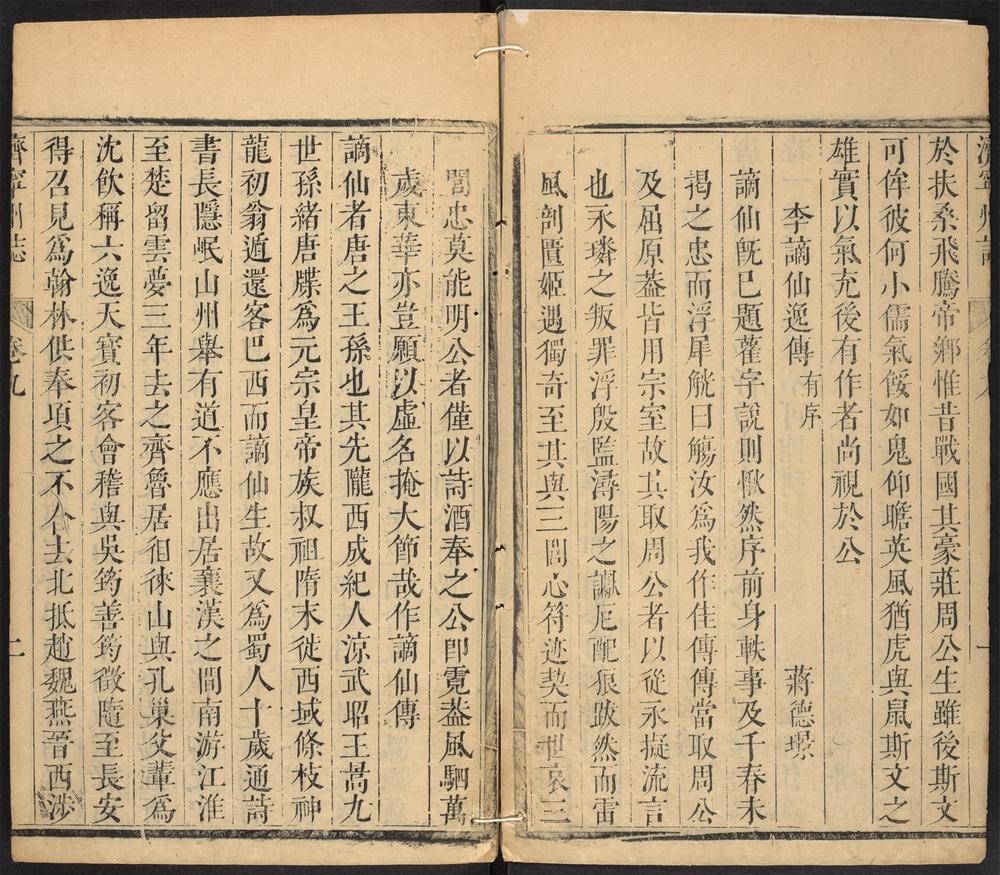 於扶桑飛騰帝鄉惟昔戰國其豪莊周公生雖後斯文
可侔彼何小儒氣餒如鬼仰瞻英風猶虎與鼠斯文之
雄實以氣充後有作者尚視於公
李謫仙逸傳有序
蔣德璟
謫仙旣巳題藋字說則愀然序前身軼事及千春未
揭之忠而浮犀觥曰觴汝爲我作佳傳傳當取周公
及屈原葢皆用宗室故其取周公者以從永擬流言
也永璘之叛罪浮殷監潯陽之讞厄配狼跋然而雷
風剖匱姬遇獨奇至其與三閭心符迹契而世哀三
閭忠莫能明公者僅以詩酒奉之公卽霓葢風駟萬
歲東華亦豈願以虛名掩大節哉作謫仙傳
謫仙者唐之王孫也其先隴西成紀人涼武昭王暠九
世孫緒唐牒爲元宗皇帝族叔祖隋末徙西域條枝神
龍初翁遁還客巴西而謫仙生故又爲蜀人十歲通詩
書長隱岷山州舉有道不應出居襄漢之間南游江淮
至楚留雲夢三年去之齊魯居徂徠山與孔巢父輩爲
沈飮稱六逸天寶初客會稽與吳筠善筠徵隨至長安
得召見爲翰林供奉項之不合去北抵趙魏燕晉西涉
濟寧州誌
卷九
二